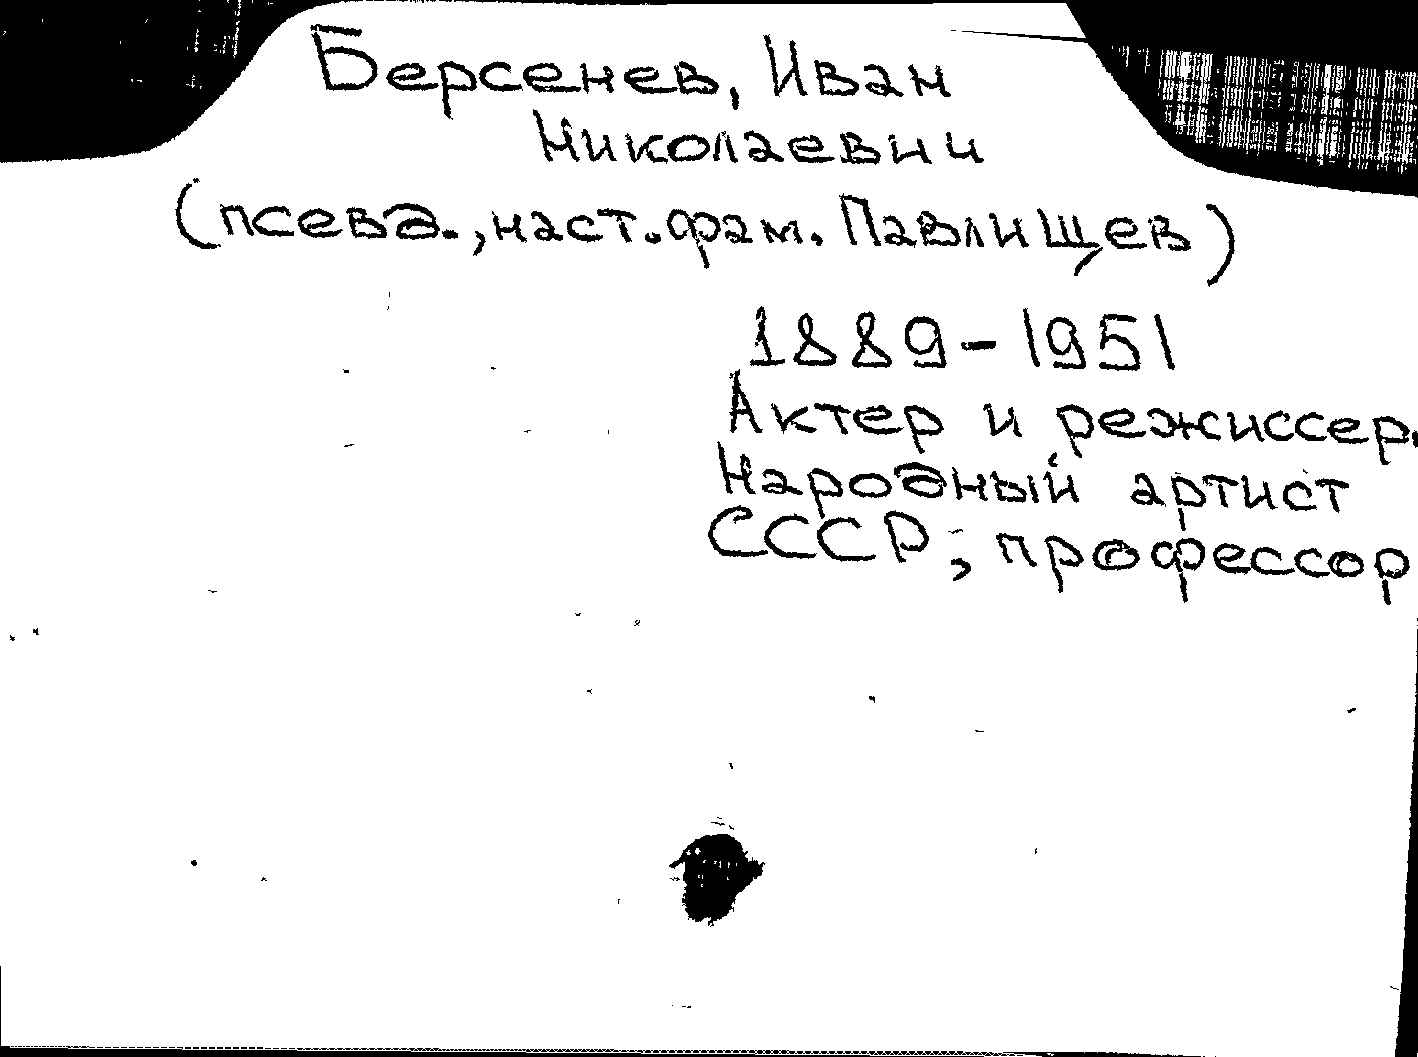 Берсенев, Иван
Николаевич
(псевд., наст. фам. Павлищев)
1889-1951
Актер и режиссер.
Народный артист
СССР, профессор